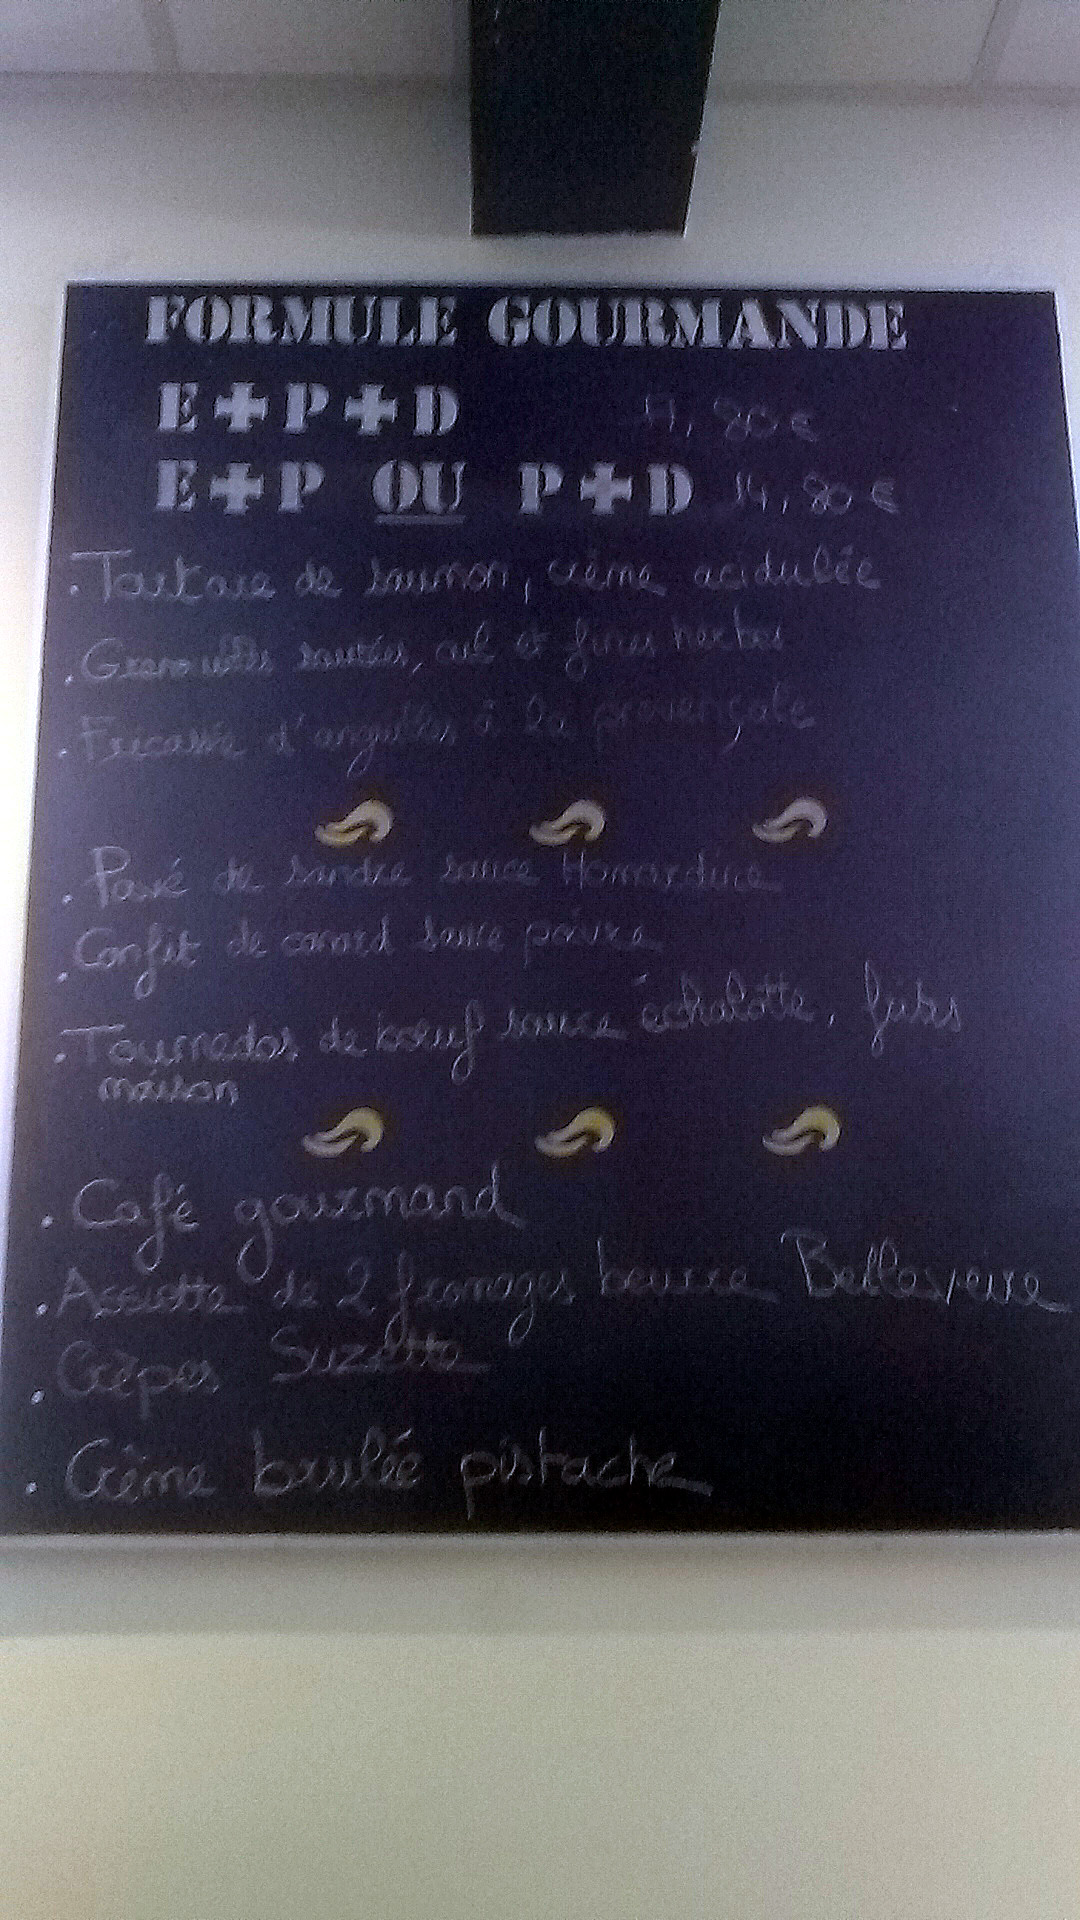 FORMULE GOURMANDE
E+P+D ,80 €
E+P OU P+D 14,80 €
. Tartare de saumon, crème acidulée
. Grenouilles sautées, ail et fines herbes
. Fricassée d'anguilles à la provençale
. Pavé de sandre sauce Homardine
. Confit de canard sauce poivre
. Tournedos de boeuf sauce échalotte, frites
maison
. Café gourmand
. Assiette de 2 fromages beurre
. Crêpes Suzette
. Crème brulée pistache